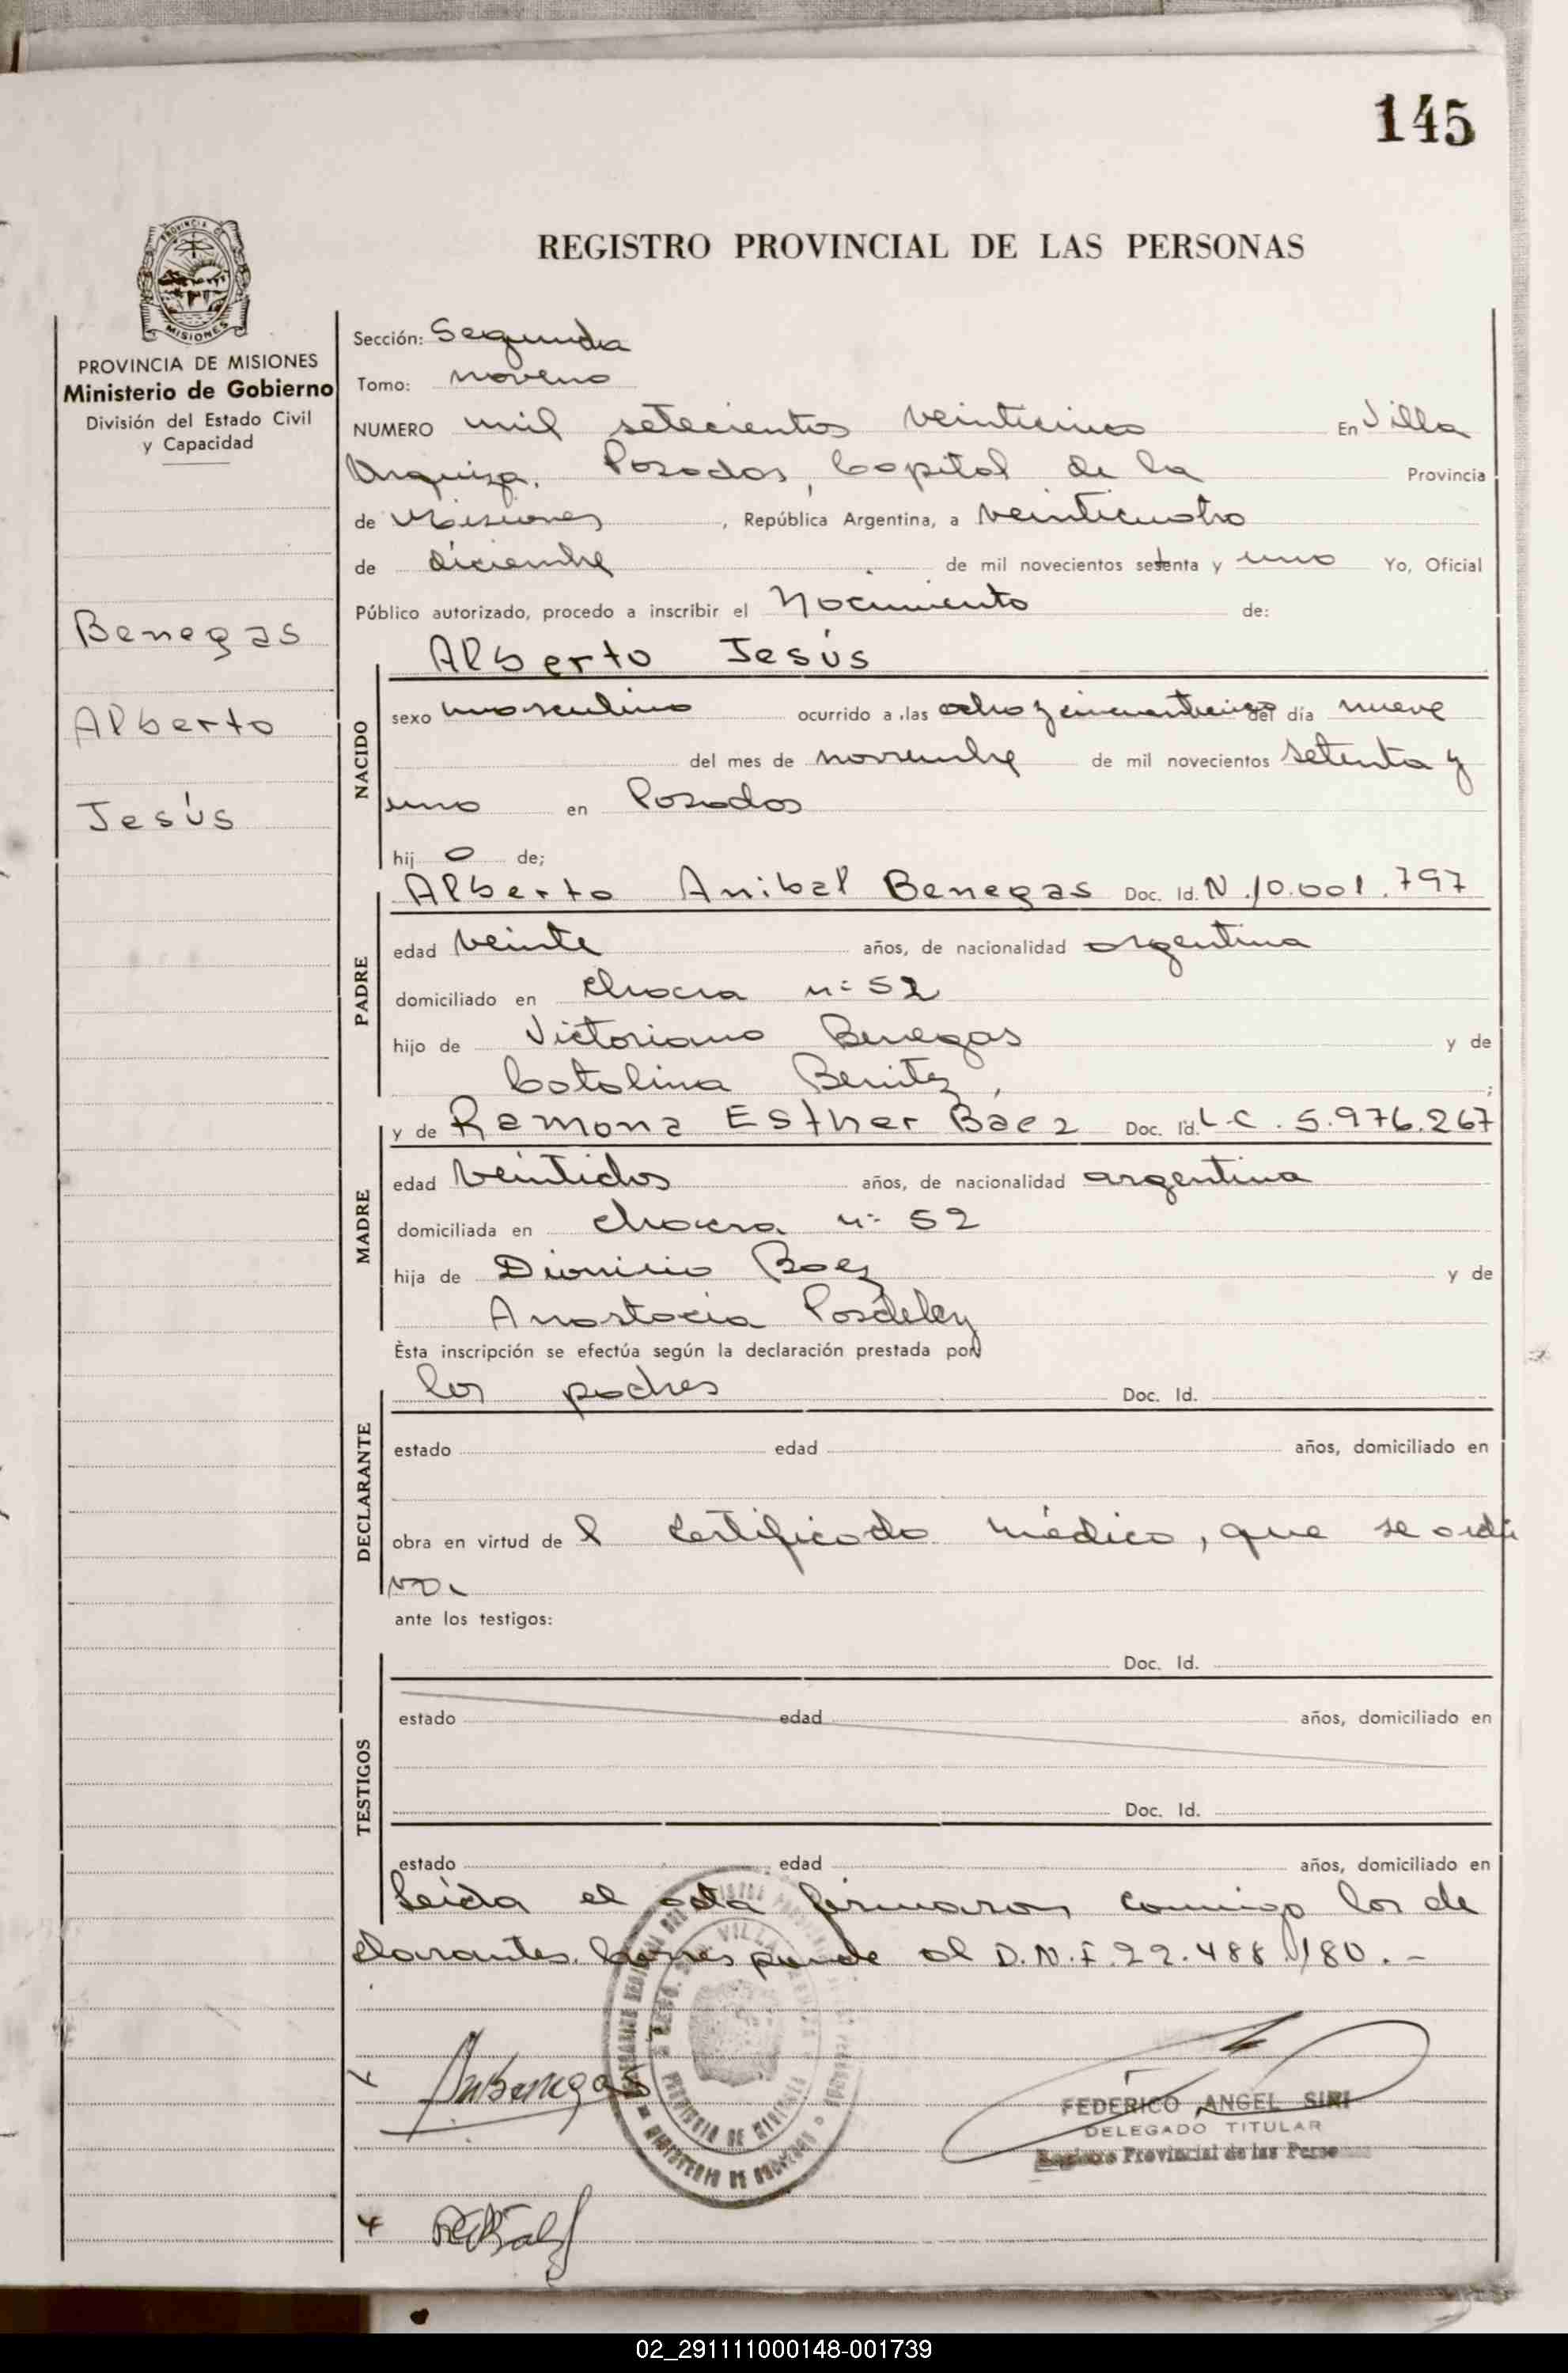 145
REGISTRO PROVINCIAL DE LAS PERSONAS
PROVINCIA DE MISIONES
Ministerio de Gobierno
División del Estado Civil
y Capacidad
Benegas
Alberto
Jesús
Sección: Segunda
Tomo: noveno
NUMERO mil setecientos veinticinco En Villa
Urquiza, Posadas, Capital de la Provincia
de Misiones, República Argentina, a veinticuatro
de diciembre de mil novecientos setenta y uno Yo, Oficial
Público autorizado, procedo a inscribir el Nacimiento de:
Alberto Jesús
NACIDO
sexo masculino ocurrido a las ocho y cincuenticinco del día nueve
del mes de noviembre de mil novecientos setenta y
uno en Posadas
hij o de;
PADRE
Alberto Anibal Benegas Doc. Id. N. 10.001.797
edad veinte años, de nacionalidad argentina
domiciliado en chacra nº 52
hijo de Victoriano Benegas y de
Catalina Benitez, ;
MADRE
y de Ramona Esther Baez Doc. Id. L-C. 5.976.267
edad veintidos años, de nacionalidad argentina
domiciliada en chacra nº 52
hija de Dionicio Baez y de
Anastacia
Ésta inscripción se efectúa según la declaración prestada por
DECLARANTE
los padres Doc. Id.
estado edad años, domiciliado en
obra en virtud de l certificado médico, que se archi
va.
ante los testigos:
TESTIGOS
Doc. Id.
estado edad años, domiciliado en
Doc. Id.
estado edad años, domiciliado en
Leída el acta firmaron conmigo los de
clarantes. Corresponde al D.N.I. 22.488.180.-
FEDERICO ANGEL SIRI
DELEGADO TITULAR
Registro Provincial de las Perso
02_291111000148-001739